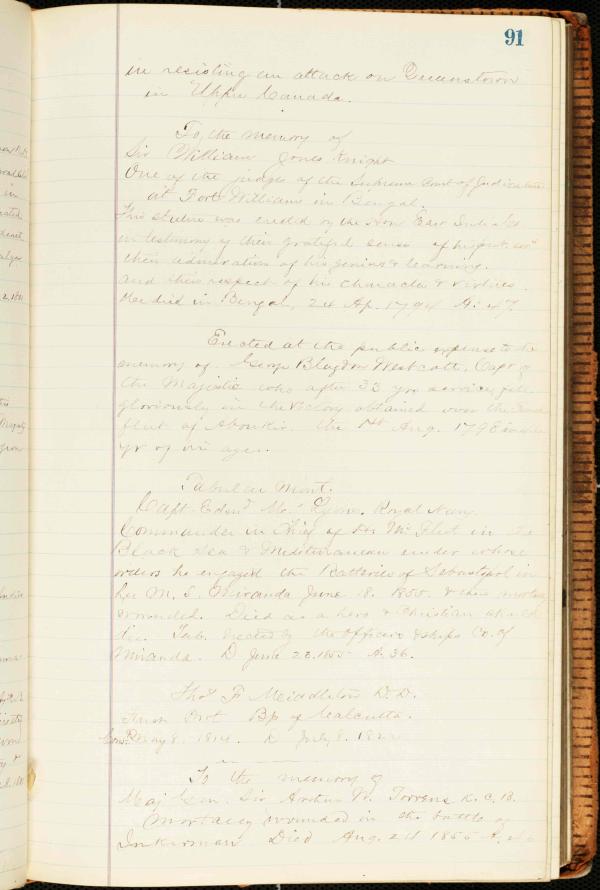 91
in resisting an attack on Queenstown
in Upper Canada.
To the memory of
Sir William Jones Knight
One of the judges of the Supreme Court of Judicature
at Fort William in Bengal.
This Statue was erected by the Hon East India Co
in testimony of their grateful sense of his
their admiration of his genius & learning.
and their respect of his character & virtues.
He died in Bengal, 24 Ap. 1794 A. 47.
Erected at the public expense to the
memory of George Blagdon Westcott, Capt of
the Majestic who after 33 yrs service fell
gloriously in the victory obtained over the
fleet of Aboukir. the 1st Aug. 1798 in
yr of his age.
Tabular Mont.
Capt Edmd Mo. Lyons. Royal Navy.
Commander in Chief of Fleet in the
Black Sea & Mediterranean under whose
orders he engaged the Batteries of Sebastopol in
her M. S. Miranda June 18. 1855. & there mortally
wounded. Died as a hero & Christian should
die. Tab. Erected by the officers & ships Co. of
Miranda. D June 23. 1855 A. 36.
Thos F Middleton D. D.
Bp of Calcutta.
May 8. 1814. D July 8. 1822
To the memory of
Maj Gen. Sir Arthur W. Torrens K. C. B.
Mortally wounded in the battle of
Inkerman Died Aug. 24 1855 A.